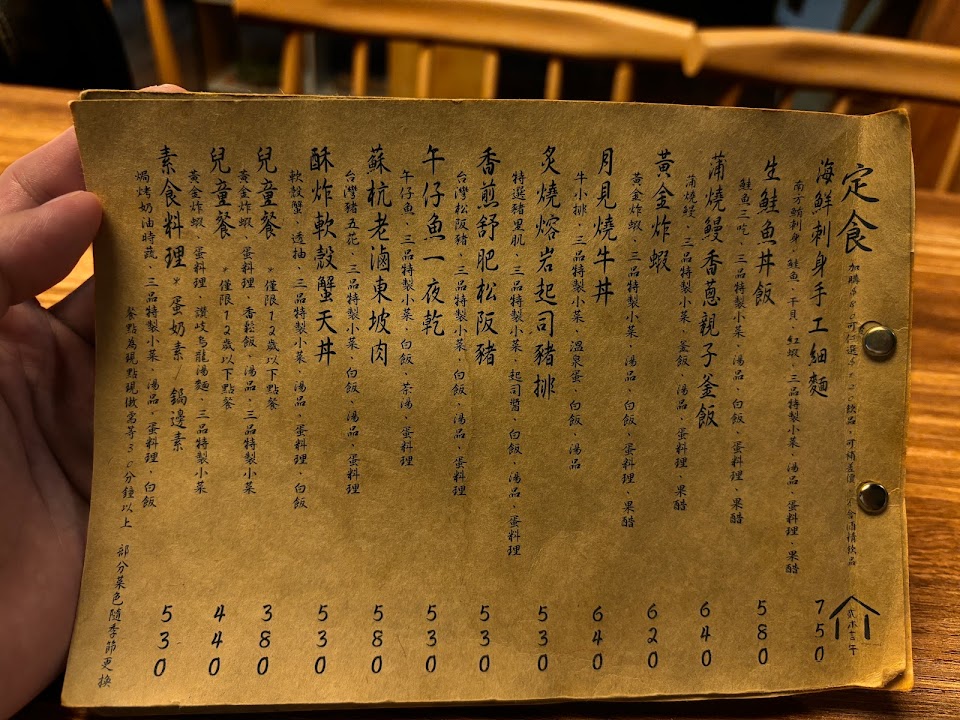 定食
加購
海鮮刺身手工細麵
南方鮪刺身、鮭魚、干貝、紅蝦、三品特製小菜、湯品、蛋料理、果醋
750
生鮭魚丼飯
鮭魚三吃、三品特製小菜、湯品、白飯、蛋料理、果醋
580
蒲燒鰻香蔥親子釜飯
蒲燒鰻、三品特製小菜、釜飯、湯品、蛋料理、果醋
640
黃金炸蝦
黃金炸蝦、三品特製小菜、湯品、白飯、蛋料理、果醋
620
月見燒牛丼
牛小排、三品特製小菜、溫泉蛋、白飯、湯品
640
炙燒熔岩起司豬排
特選豬里肌、三品特製小菜、起司醬、白飯、湯品、蛋料理
530
香煎舒肥松阪豬
台灣松阪豬、三品特製小菜、白飯、湯品、蛋料理
530
午仔魚一夜乾
午仔魚、三品特製小菜、白飯、茶湯、蛋料理
530
蘇杭老滷東坡肉
台灣豬五花、三品特製小菜、白飯、湯品、蛋料理
580
酥炸軟殼蟹天丼
軟殼蟹、透抽、三品特製小菜、湯品、蛋料理、白飯
530
兒童餐 *僅限12歲以下點餐
黃金炸蝦、蛋料理、香鬆飯、湯品、三品特製小菜
380
兒童餐 *僅限12歲以下點餐
黃金炸蝦、蛋料理、讚岐烏龍湯麵、三品特製小菜
440
素食料理 *蛋奶素/鍋邊素
焗烤奶油時蔬、三品特製小菜、湯品、蛋料理、白飯
530
餐點為現點現做需等30分鐘以上 部分菜色隨季節更換